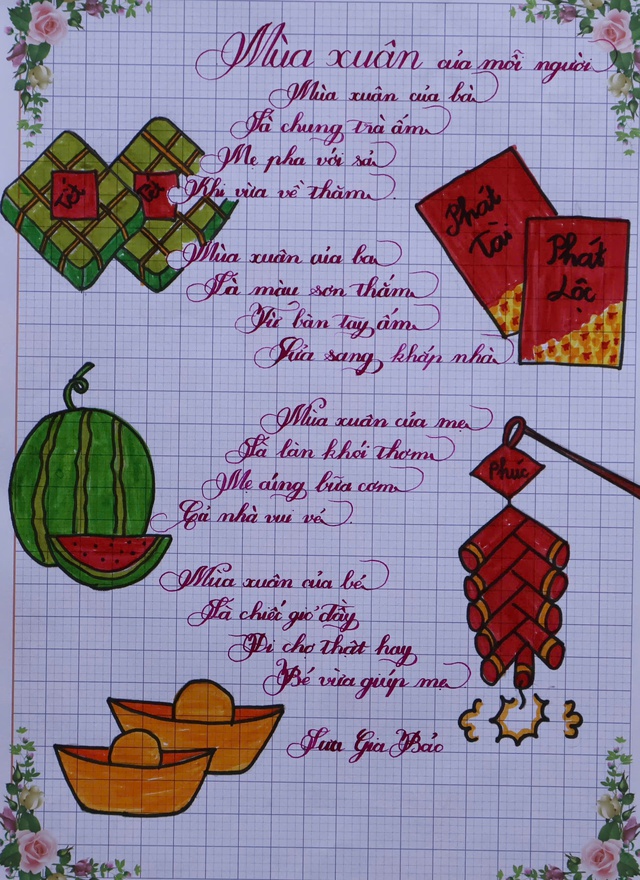 Mùa xuân của mỗi người
Mùa xuân của bà
Là chung trà ấm
Mẹ pha với sả
Khi vừa về thăm
Tết
Tết
Phát
Tài
Phát
Lộc
Mùa xuân của ba
Là màu sơn thắm
Từ bàn tay ấm
Sửa sang khắp nhà
Mùa xuân của mẹ
Là làn khói thơm
Mẹ cúng bữa cơm
Cả nhà vui vẻ
Phúc
Mùa xuân của bé
Là chiếc giỏ đầy
Đi chợ thật hay
Bé vừa giúp mẹ
Lưu Gia Bảo